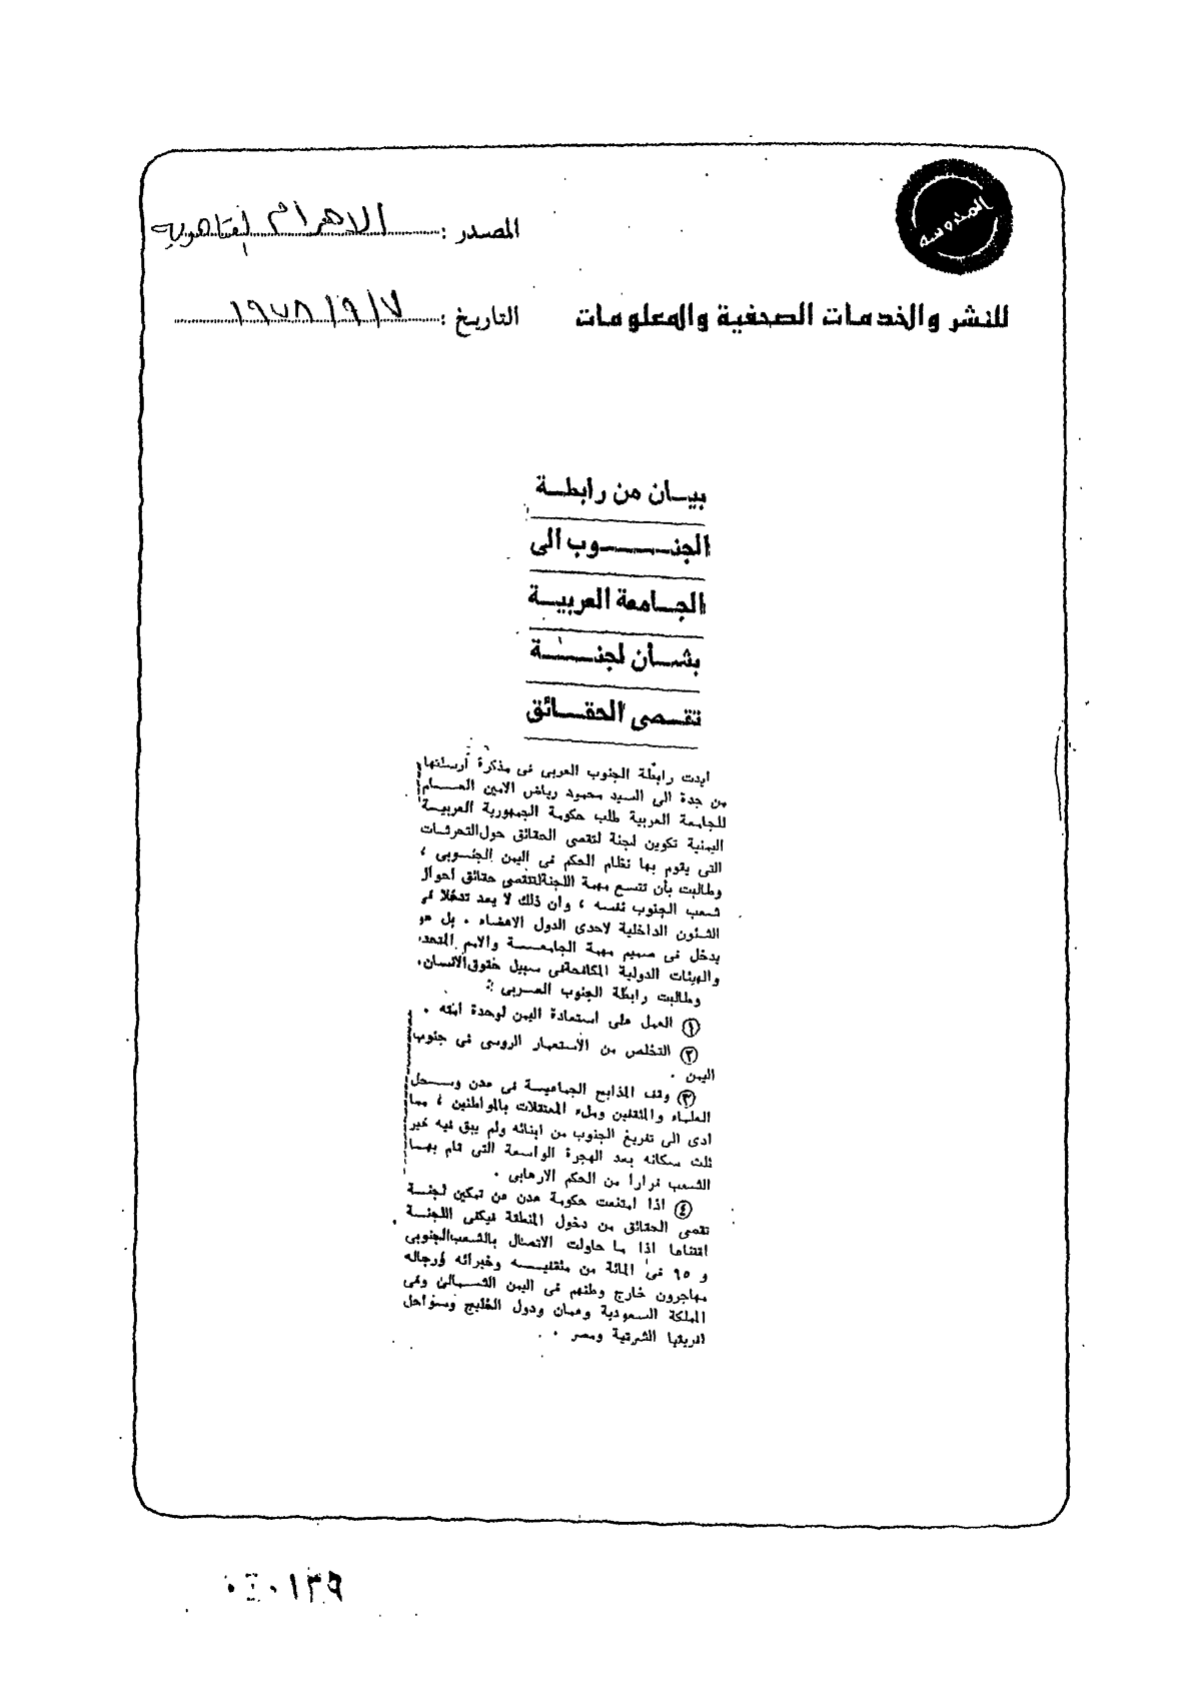 المحروسة
المصدر : الاهرام القاهرية
للنشر والخدمات الصحفية والمعلومات
التاريخ : ١٩٧٨/٩/٧
بيـان من رابطـة
الجنـــوب الى
الجـامعة العربيـة
بشـأن لجنـــة
تقـصى الحقـائق
أيدت رابطة الجنوب العربى فى مذكرة أرسلتها
من جدة الى السيد محمود رياض الامين العـــام
للجامعة العربية طلب حكومة الجمهورية العربيـة
اليمنية تكوين لجنة لتقصى الحقائق حول التحرشات
التى يقوم بها نظام الحكم فى اليمن الجنـوبى ،
وطالبت بأن تتسع مهمة اللجنة لتتقصى حقائق احوال
شعب الجنوب نفسه ، وان ذلك لا يعد تدخلا فى
الشئون الداخلية لاحدى الدول الاعضاء . بل هو
يدخل فى صميم مهمة الجامعـــة والامم المتحدة
والهيئات الدولية المكافحة فى سبيل حقوق الانسان.
وطالبت رابطة الجنوب العـربى :
(١) العمل على استعادة اليمن لوحدة أمته .
(٢) التخلص من الاستعمار الروسى فى جنوب
اليمن .
(٣) وقف المذابح الجماعيـة فى عدن وســحل
العلماء والمثقفين وملء المعتقلات بالمواطنين ، مما
ادى الى تفريغ الجنوب من ابنائه ولم يبق فيه غير
ثلث سكانه بعد الهجرة الواسعة التى قام بهـا
الشعب فرارا من الحكم الارهابى .
(٤) اذا امتنعت حكومة عدن عن تمكين لجنـة
تقصى الحقائق من دخول المنطقة فيكفى اللجنـة
اقتناعا اذا ما حاولت الاتصال بالشعب الجنوبى
و ٩٥ فى المائة من مثقفيـــه وخبرائه ورجاله
مهاجرون خارج وطنهم فى اليمن الشـمالى وفى
المملكة السعودية وعمان ودول الخليج وسواحل
افريقيا الشرقية ومصر .
٠١٣٩